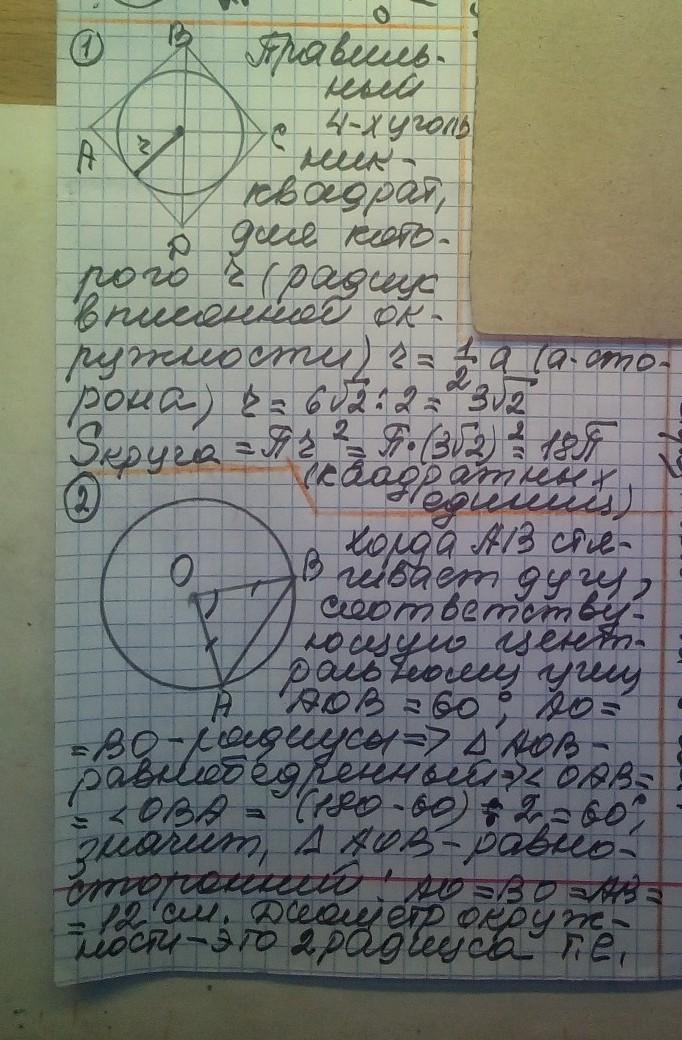 1
B
Правиль-
ный
4-хуголь
A
r
C
ник-
квадрат,
D
для кото-
рого r (радиус
вписанной ок-
ружности) r = 1/2 a (a-сто-
рона) r = 6√2 : 2 = 3√2
Sкруга = πr² = π·(3√2)² = 18π
(квадратных
единиц)
2
Хорда AB стя-
O
B
гивает дугу,
соответству-
ющую цент-
ральному углу
A
AOB = 60°, AO =
= BO - радиусы => △ AOB -
равнобедренный => < OAB =
= < OBA = (180-60) : 2 = 60°,
значит, △ AOB - равно-
сторонний: AO = BO = AB =
= 12 см. Диаметр окруж-
ности - это 2 радиуса т.е.